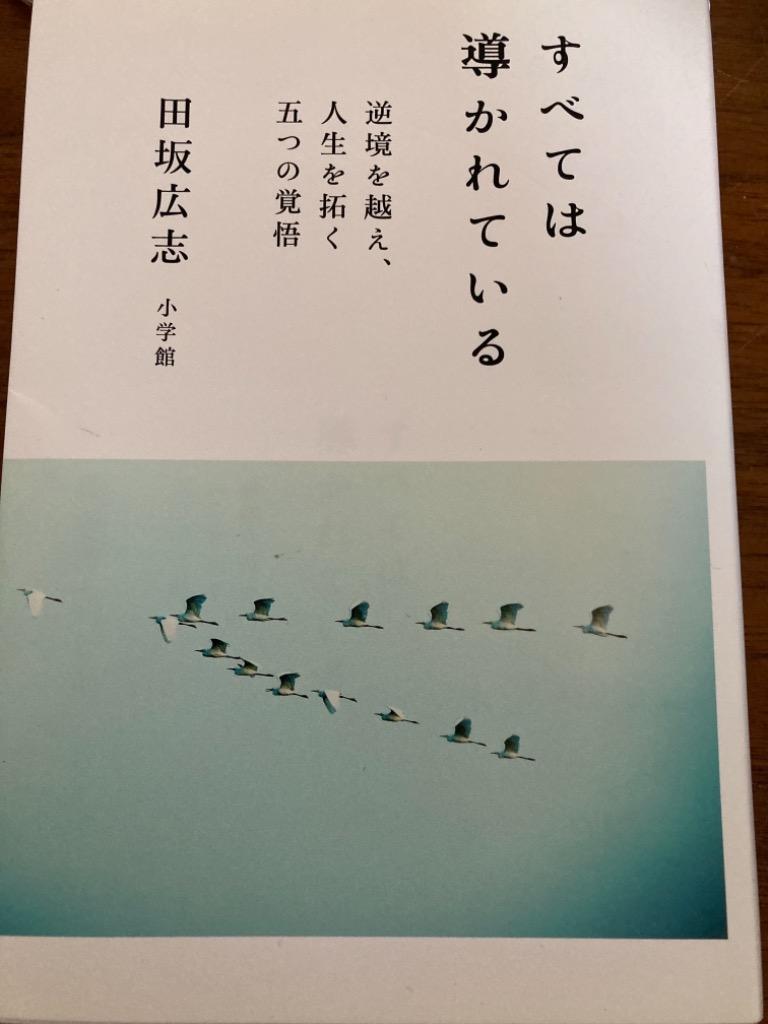 すべては
導かれている
逆境を越え、
人生を拓く
五つの覚悟
田坂広志
小学館